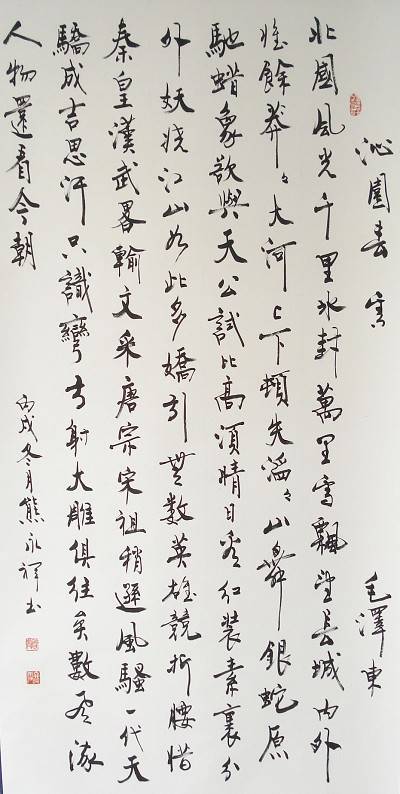 沁園春 雪 毛澤東
北國风光千里冰封萬里雪飄望长城内外
惟餘莽々大河上下頓失滔々山舞銀蛇原
馳蜡象欲與天公試比高須晴日看红装素裹分
外妖娆江山如此多嬌引無數英雄競折腰惜
秦皇漢武畧輸文采唐宗宋祖稍遜風騷一代天
驕成吉思汗只識彎弓射大雕俱往矣數风流
人物還看今朝
丙戌冬月熊永祥书